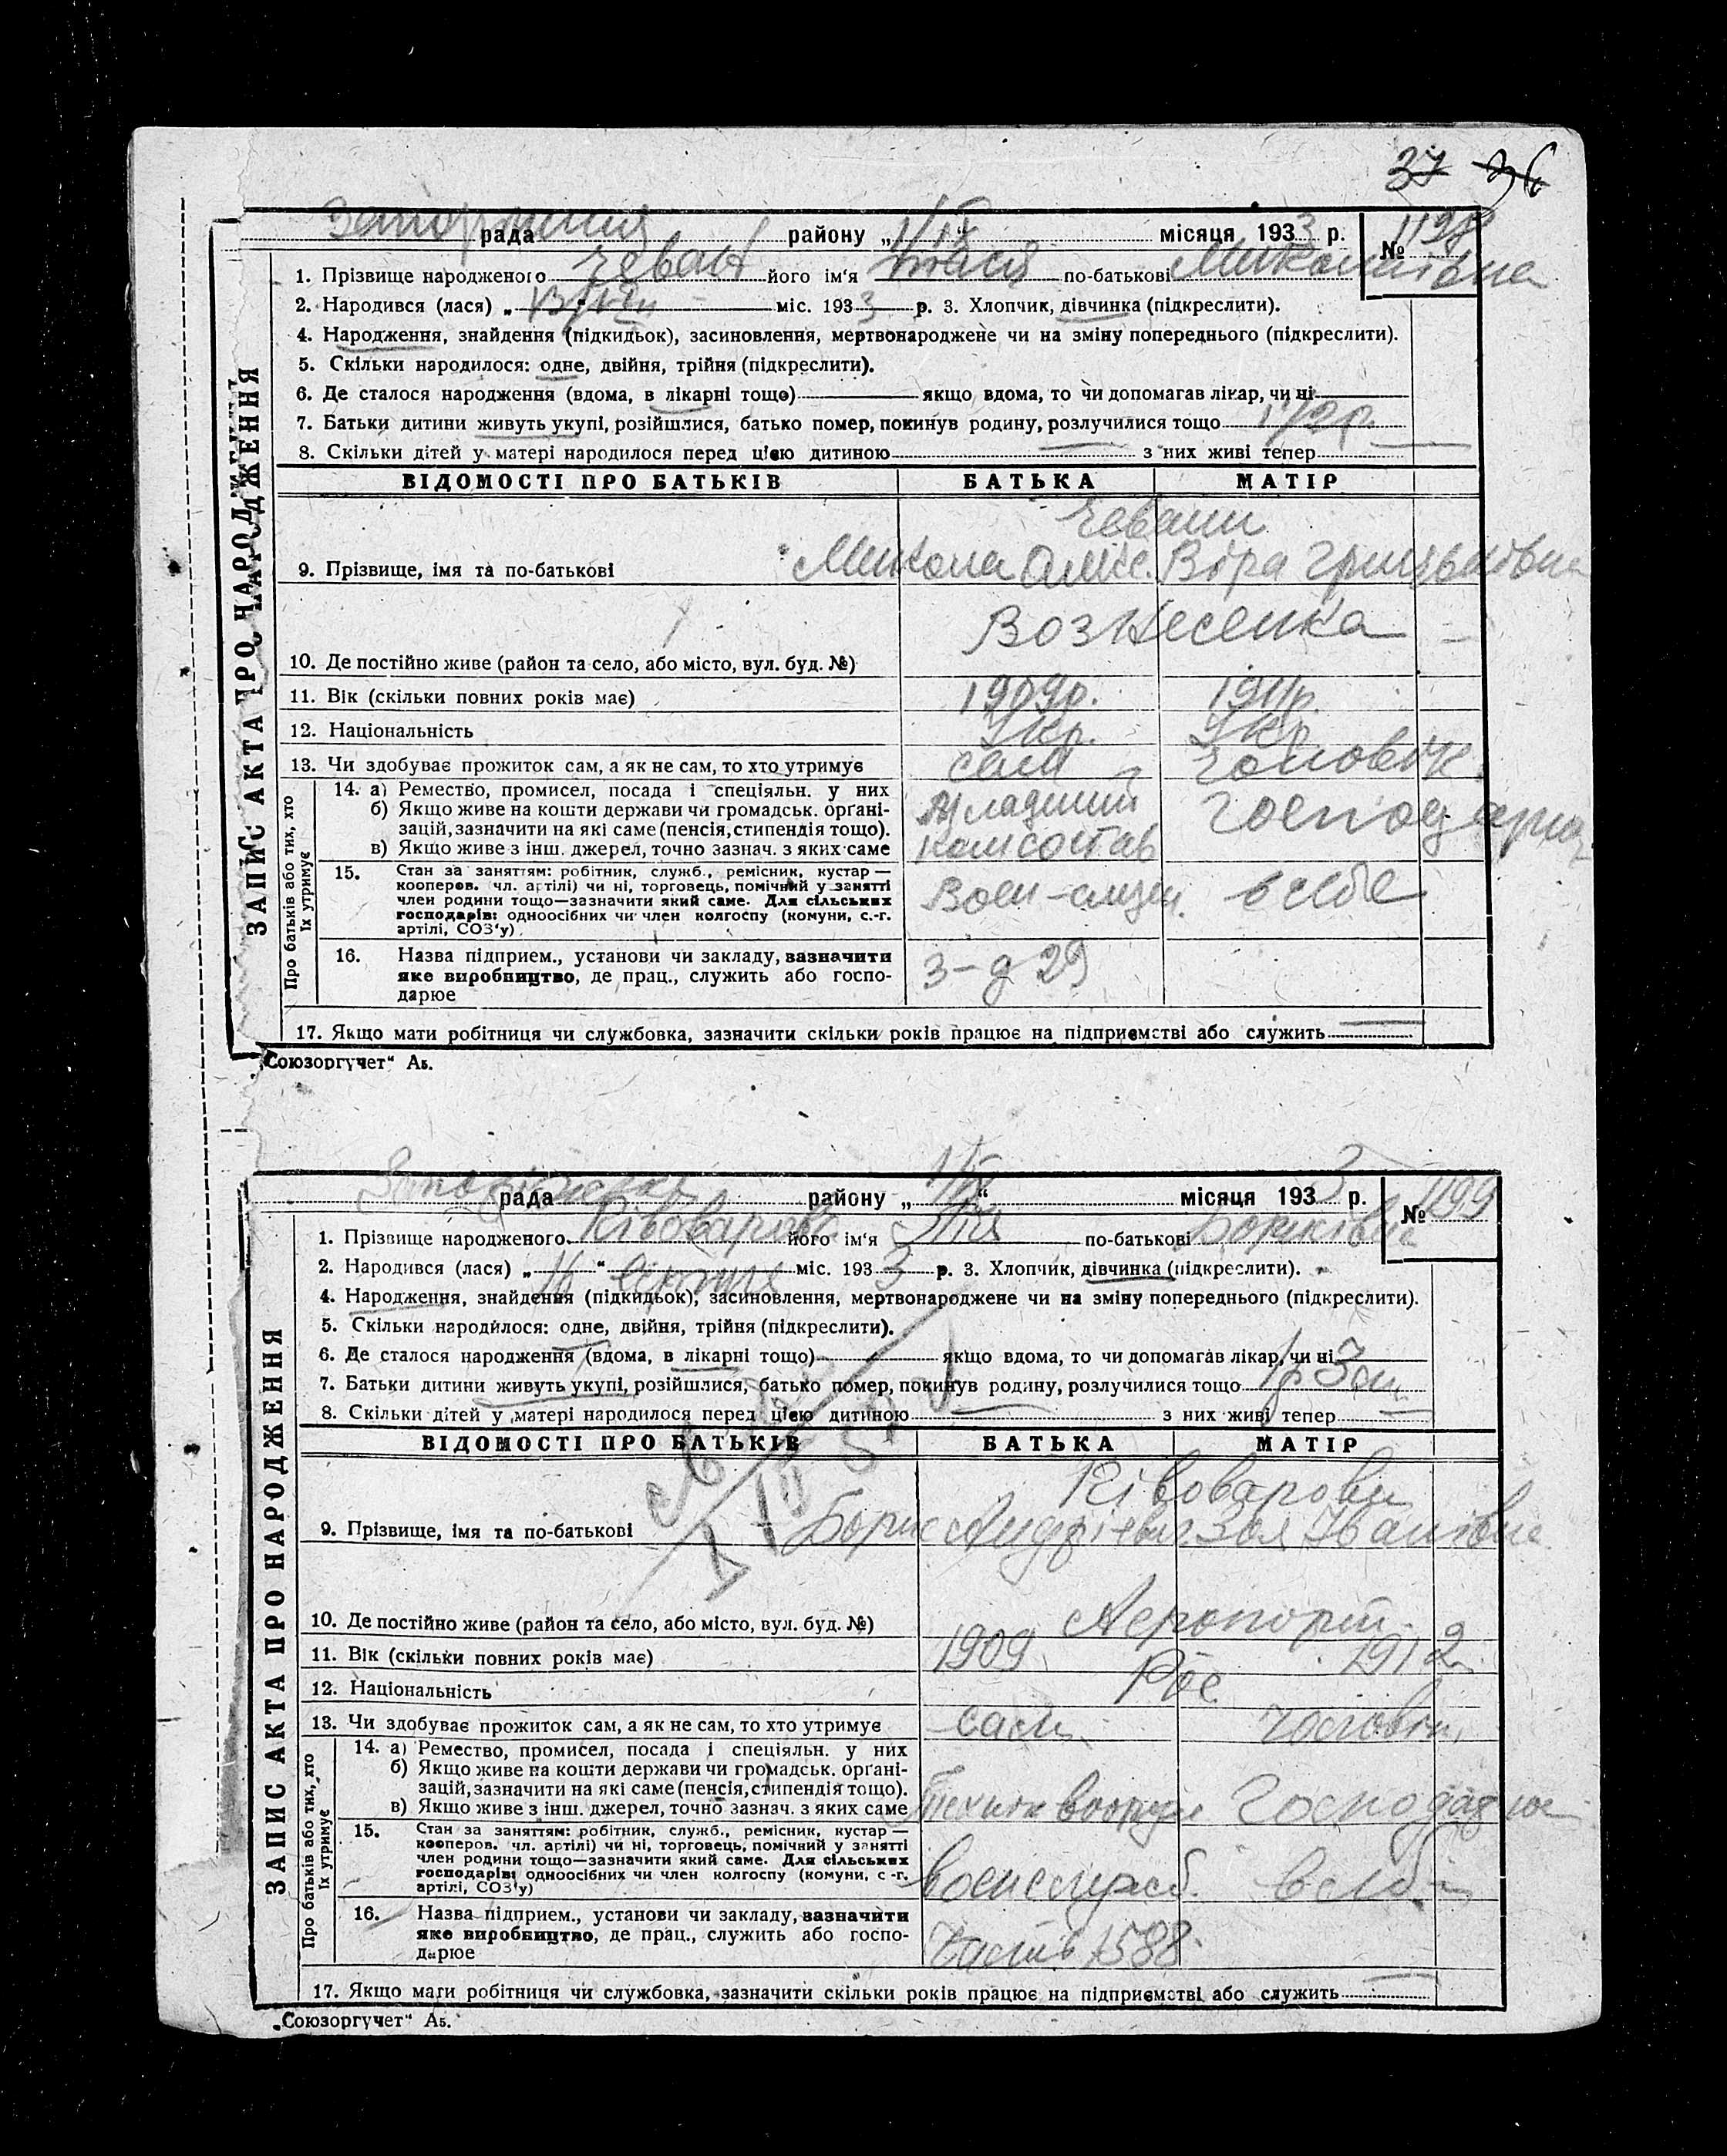 37 36
Запоріжжя рада району „1/IX“ місяця 1933 р. № 1198
1. Прізвище народженого Чеван його ім'я Тася по-батькові Миколаївна
2. Народився (лася) „ “ міс. 1933 р. 3. Хлопчик, дівчинка (підкреслити).
4. Народження, знайдення (підкидьок), засиновлення, мертвонароджене чи на зміну попереднього (підкреслити).
5. Скільки народилося: одне, двійня, трійня (підкреслити).
6. Де сталося народження (вдома, в лікарні тощо) якщо вдома, то чи допомагав лікар, чи ні
7. Батьки дитини живуть укупі, розійшлися, батько помер, покинув родину, розлучилися тощо
8. Скільки дітей у матері народилося перед цією дитиною — з них живі тепер
ЗАПИС АКТА ПРО НАРОДЖЕННЯ
ВІДОМОСТІ ПРО БАТЬКІВ БАТЬКА МАТІР
Чевани
9. Прізвище, імя та по-батькові Микола Олекс. Віра Григорівна
Вознесенка
10. Де постійно живе (район та село, або місто, вул. буд. №)
11. Вік (скільки повних років має) 1909р. 1911р.
12. Національність Укр. Укр.
13. Чи здобуває прожиток сам, а як не сам, то хто утримує сам Чоловік
Про батьків або тих, хто їх утримує
14. а) Ремество, промисел, посада і спеціяльн. у них
б) Якщо живе на кошти держави чи громадськ. орґані-
зацій, зазначити на які саме (пенсія, стипендія тощо).
в) Якщо живе з інш. джерел, точно зазнач. з яких саме
Младший комсостав
15. Стан за заняттям: робітник, служб., ремісник, кустар —
кооперов. чл. артілі) чи ні, торговець, помічний у занятті
член родини тощо—зазначити який саме. Для сільських
господарів: одноосібних чи член колгоспу (комуни, с.-г.
артілі, СОЗ'у)
в себе
16. Назва підприєм., установи чи закладу, зазначити
яке виробництво, де прац., служить або госпо-
дарює
З-д 29
17. Якщо мати робітниця чи службовка, зазначити скільки років працює на підприємстві або служить —
„Союзоргучет“ А5.
рада району „1/IX“ місяця 1933 р. № 1199
1. Прізвище народженого Півоварова його ім'я по-батькові Борисівна
2. Народився (лася) „16“ серпня міс. 1933 р. 3. Хлопчик, дівчинка (підкреслити).
4. Народження, знайдення (підкидьок), засиновлення, мертвонароджене чи на зміну попереднього (підкреслити).
5. Скільки народилося: одне, двійня, трійня (підкреслити).
6. Де сталося народження (вдома, в лікарні тощо) якщо вдома, то чи допомагав лікар, чи ні
7. Батьки дитини живуть укупі, розійшлися, батько помер, покинув родину, розлучилися тощо
8. Скільки дітей у матері народилося перед цією дитиною — з них живі тепер —
ЗАПИС АКТА ПРО НАРОДЖЕННЯ
ВІДОМОСТІ ПРО БАТЬКІВ БАТЬКА МАТІР
Півоварови
9. Прізвище, імя та по-батькові Борис Андрієвич Зоя Іванівна
Аеропорт
10. Де постійно живе (район та село, або місто, вул. буд. №)
11. Вік (скільки повних років має) 1909 1912
12. Національність Рос.
13. Чи здобуває прожиток сам, а як не сам, то хто утримує сам чоловік
Про батьків або тих, хто їх утримує
14. а) Ремество, промисел, посада і спеціяльн. у них
б) Якщо живе на кошти держави чи громадськ. орґані-
зацій, зазначити на які саме (пенсія, стипендія тощо).
в) Якщо живе з інш. джерел, точно зазнач. з яких саме
15. Стан за заняттям: робітник, служб., ремісник, кустар —
кооперов. чл. артілі) чи ні, торговець, помічний у занятті
член родини тощо—зазначити який саме. Для сільських
господарів: одноосібних чи член колгоспу (комуни, с-г.
артілі, СОЗ'у)
военслужб. в себе
16. Назва підприєм., установи чи закладу, зазначити
яке виробництво, де прац., служить або госпо-
дарює
Часть 1588
17. Якщо мати робітниця чи службовка, зазначити скільки років працює на підприємстві або служить —
„Союзоргучет“ А5.